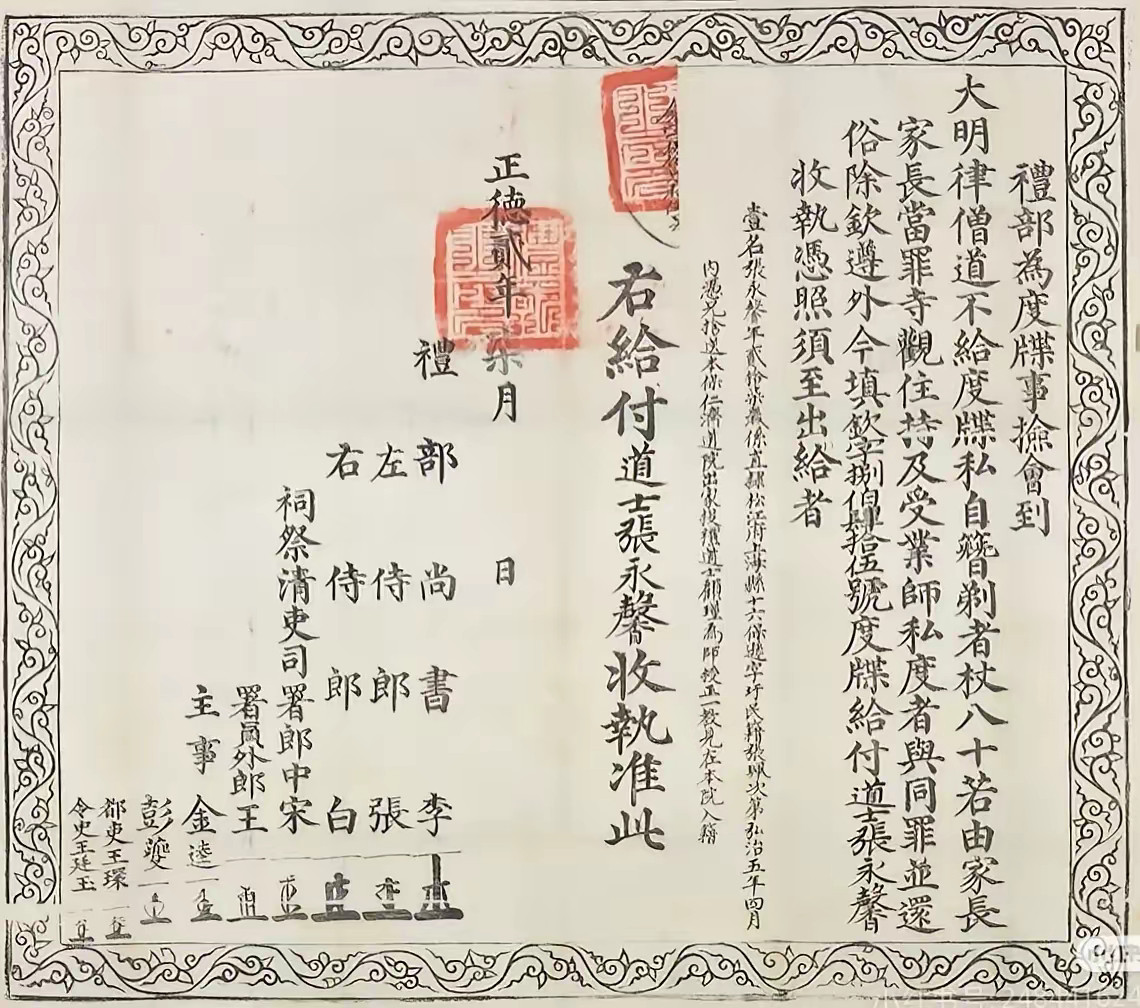 禮部為度牒事撿會到
大明律僧道不給度牒私自簪剃者杖八十若由家長
家長當罪寺觀住持及受業師私度者與同罪並還
俗除欽遵外今填欽字捌伯肆拾伍號度牒給付道士張永馨
收執憑照須至出給者
壹名張永馨年貳拾柒歲係直隸松江府上海縣十六保遜字圩民籍張珮次弟弘治五年四月
內憑兄捨送本保仁濟道院出家投禮道士顧瑾為師授正一教見在本院入籍
右給付道士張永馨收執准此
正德貳年柒月 日
禮部尚書李
左侍郎張
右侍郎白
祠祭清吏司署郎中宋
署員外郎王
主事金逵
彭夔
都吏王琛
令史王廷玉